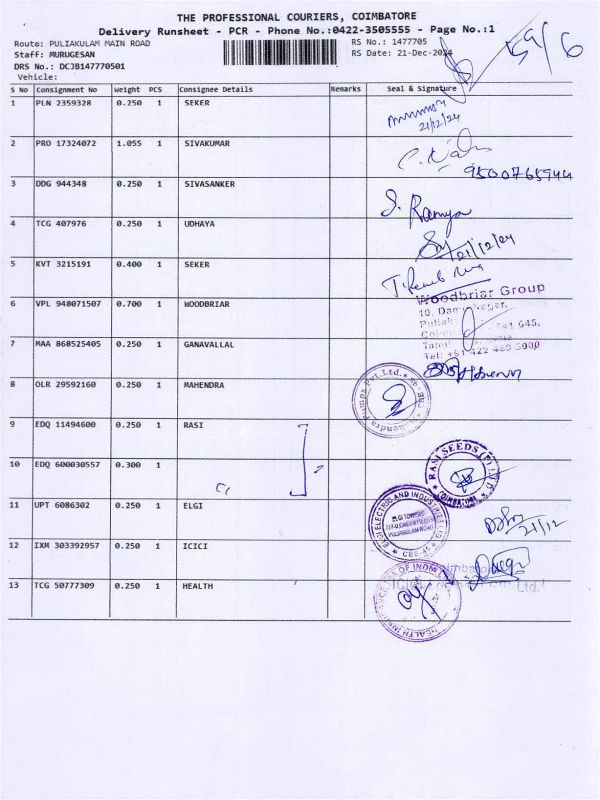 THE PROFESSIONAL COURIERS, COIMBATORE
Delivery Runsheet - PCR - Phone No.:0422-3505555 - Page No.:1
Route: PULIAKULAM MAIN ROAD RS No.: 1477705
Staff: MURUGESAN RS Date: 21-Dec-2024
DRS No.: DCJB147770501
Vehicle:
S No Consignment No Weight PCS Consignee Details Remarks Seal & Signature
1 PLN 2359328 0.250 1 SEKER
21/12/24
2 PRO 17324072 1.055 1 SIVAKUMAR
9500765944
3 DDG 944348 0.250 1 SIVASANKER
S. Ramya
4 TCG 407976 0.250 1 UDHAYA
21/12/24
5 KVT 3215191 0.400 1 SEKER
Woodbriar Group
6 VPL 948071507 0.700 1 WOODBRIAR
10, Nagar,
641 045,
Tel: +91 422 5000
7 MAA 868525405 0.250 1 GANAVALLAL
8 OLR 29592160 0.250 1 MAHENDRA
Mahendra Pumps Pvt.Ltd.
9 EDQ 11494600 0.250 1 RASI
RASI SEEDS (P)
COIMBATORE
10 EDQ 600030557 0.300 1
11 UPT 6086302 0.250 1 ELGI
ELGI ELECTRIC AND INDUSTRIES
ELGI TOWERS
PULIAKULAM ROAD
CBE-45
21/12
12 IXM 303392957 0.250 1 ICICI
13 TCG 50777309 0.250 1 HEALTH
HEALTH INSURANCE TPA OF INDIA
Ltd.